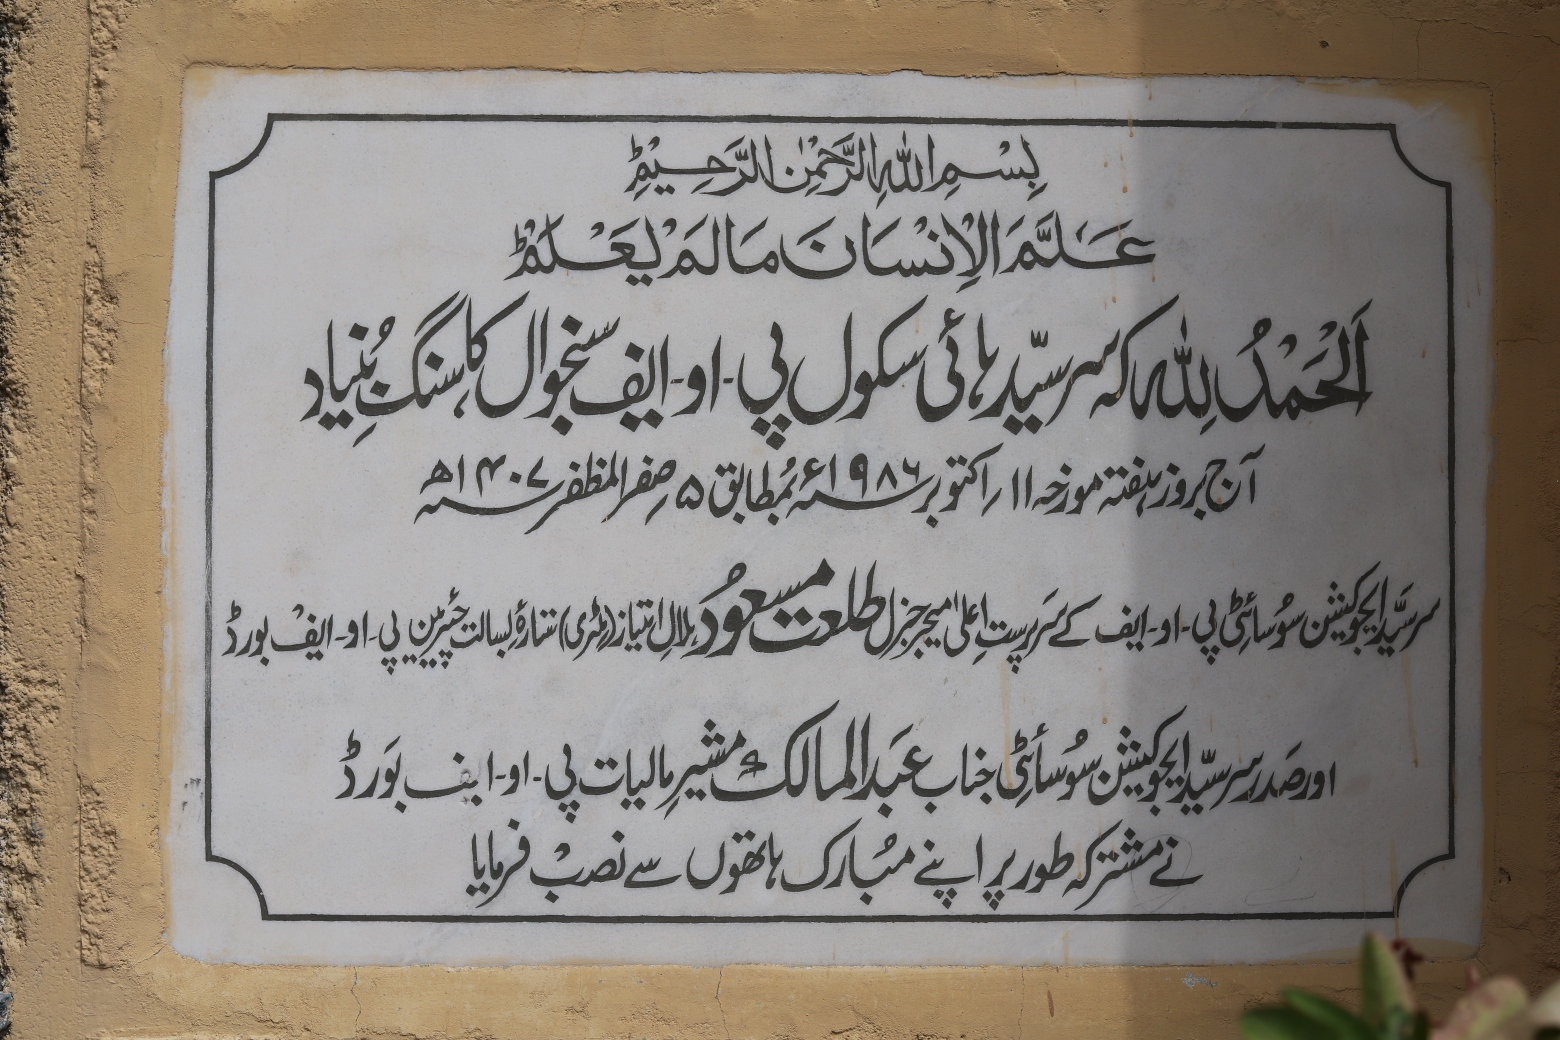 بِسْمِ اللهِ الرَّحْمٰنِ الرَّحِيْمِؕ
عَلَّمَ الْاِنْسَانَ مَا لَمْ يَعْلَمْؕ
اَلْحَمْدُ لِلّٰہ کہ سرسیّد ہائی سکول پی۔او۔ایف سنجوال کا سنگِ بُنیاد
آج بروز ہفتہ مورخہ ۱۱؍ اکتوبر ۱۹۸۶ء بمُطابق ۵ صفر المظفر ۱۴۰۷ھ
سرسیَّد ایجوکیشن سوُسائٹی پی۔او۔ایف کے سَرپرستِ اعلیٰ میجر جنرل طلعت مسعوُد ہلالِ امتیاز (ملٹری) ستارۂ بسالت چئرمین پی۔او۔ایفْ بورڈ
اور صَدر سرسیّد ایجوکیشن سوُسأئٹی جناب عَبدالمالک مشیرِ مالیات پی۔او۔ایف بَورڈ
نے مشترکہ طور پر اپنے مُبارک ہاتھوں سے نصبْ فرمایا